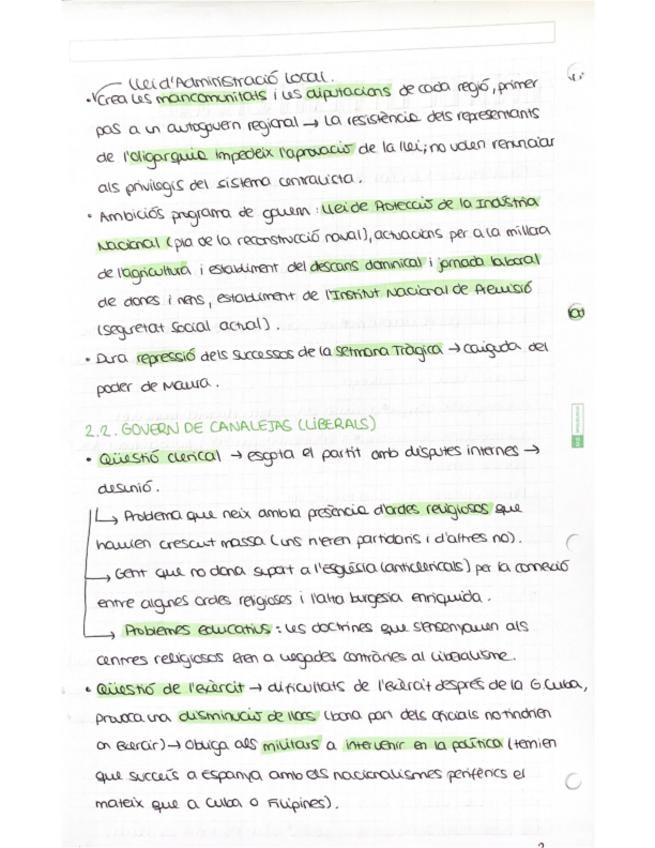 Llei d'Administració Local.
• Crea les mancomunitats i les diputacions de cada regió, primer
pas a un autogovern regional → La resistència dels representants
de l'oligarquia impedeix l'aprovació de la llei; no volen renunciar
als privilegis del sistema centralista.
• Ambiciós programa de govern: Llei de Protecció de la Indústria
Nacional (pla de la reconstrucció naval), actuacions per a la millora
de l'agricultura i establiment del descans dominical i jornada laboral
de dones i nens, establiment de l'Institut Nacional de Previsió
(seguretat social actual).
• Dura repressió dels successos de la Setmana Tràgica → caiguda del
poder de Maura.
2.2. GOVERN DE CANALEJAS (LIBERALS)
• Qüestió clerical → esgota el partit amb disputes internes →
desunió.
↳ Problema que neix amb la presència d'ordes religiosos que
havien crescut massa (uns n'eren partidaris i d'altres no).
→ Gent que no dona suport a l'església (anticlericals) per la connexió
entre algunes ordes religioses i l'alta burgesia enriquida.
↳ Problemes educatius: les doctrines que s'ensenyaven als
centres religiosos eren a vegades contràries al liberalisme.
• Qüestió de l'exèrcit → dificultats de l'exèrcit després de la G. Cuba,
provoca una disminució de llocs (bona part dels oficials no tindrien
on exercir) → Obliga als militars a intervenir en la política (temien
que succeís a Espanya amb els nacionalismes perifèrics el
mateix que a Cuba o Filipines).